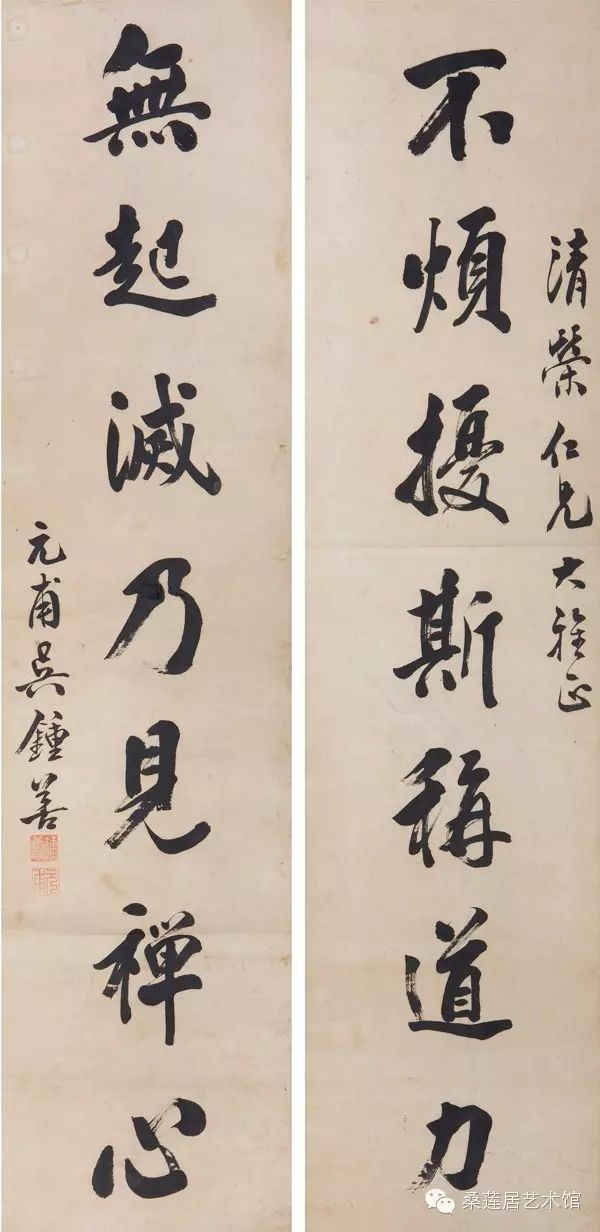 清榮仁兄大雅正
不煩擾斯稱道力
無起滅乃見禪心
元甫吳鍾善
桑莲居艺术馆